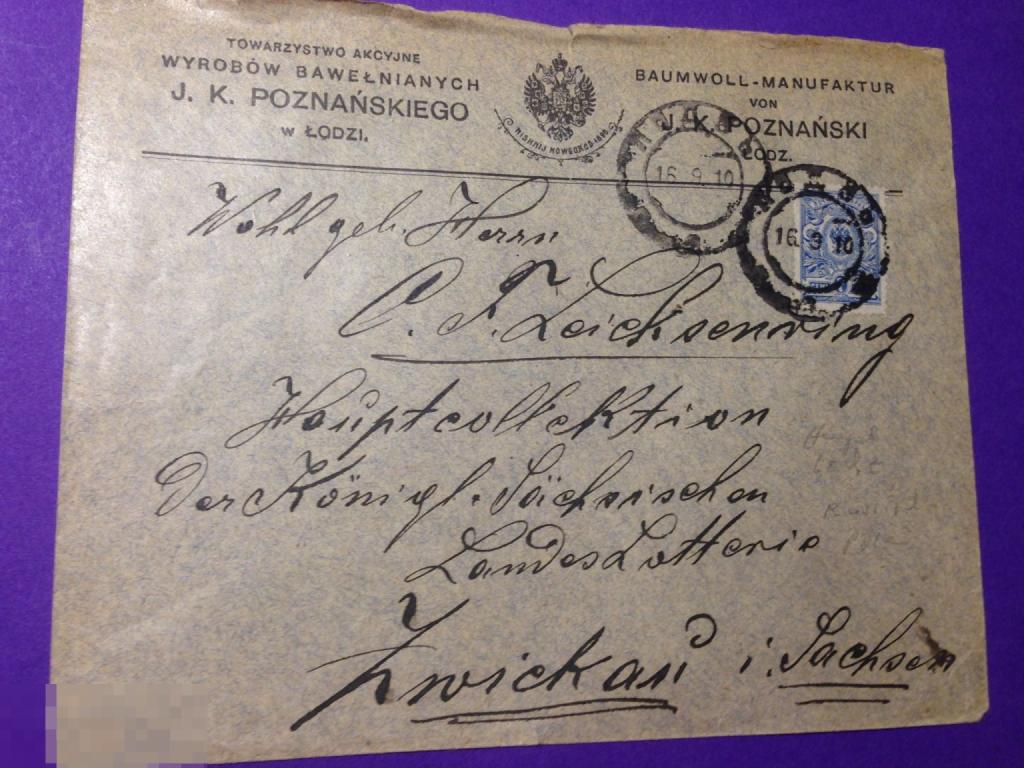 TOWARZYSTWO AKCYJNE
WYROBÓW BAWEŁNIANYCH
J. K. POZNAŃSKIEGO
W ŁODZI.
NISHNIJ NOWGOROD 1896
BAUMWOLL-MANUFAKTUR
VON
J. K. POZNAŃSKI
ŁODZ.
16 9 10
16 9 10
Wohlgeb. Herrn
C. F. Leicksenring
Hauptcollektion
Der Königl. Sächsischen
LandesLotterie
Zwickau i. Sachsen